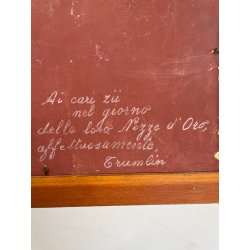 Ai cari zii
nel giorno
delle loro Nozze d'Oro,
affettuosamente,